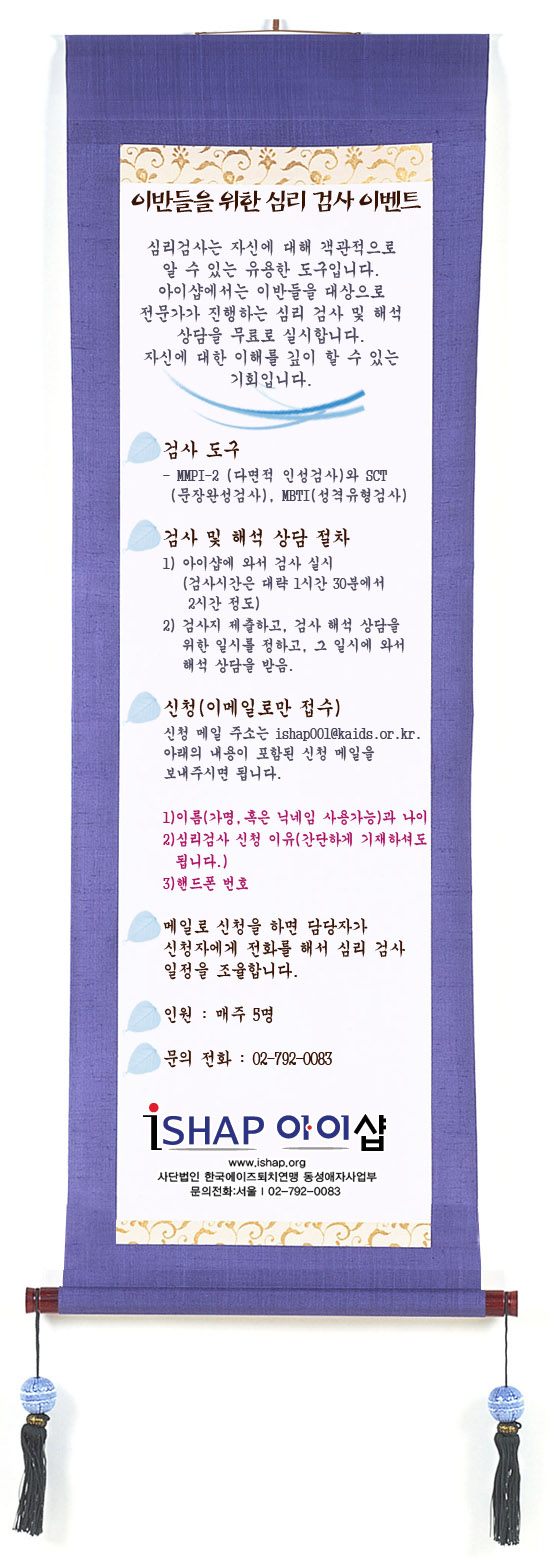 이반들을 위한 심리 검사 이벤트
심리검사는 자신에 대해 객관적으로
알 수 있는 유용한 도구입니다.
아이샵에서는 이반들을 대상으로
전문가가 진행하는 심리 검사 및 해석
상담을 무료로 실시합니다.
자신에 대한 이해를 깊이 할 수 있는
기회입니다.
검사 도구
- MMPI-2 (다면적 인성검사)와 SCT
(문장완성검사), MBTI(성격유형검사)
검사 및 해석 상담 절차
1) 아이샵에 와서 검사 실시
(검사시간은 대략 1시간 30분에서
2시간 정도)
2) 검사지 제출하고, 검사 해석 상담을
위한 일시를 정하고, 그 일시에 와서
해석 상담을 받음.
신청(이메일로만 접수)
신청 메일 주소는 ishap001@kaids.or.kr.
아래의 내용이 포함된 신청 메일을
보내주시면 됩니다.
1)이름(가명,혹은 닉네임 사용가능)과 나이
2)심리검사 신청 이유(간단하게 기재하셔도
됩니다.)
3)핸드폰 번호
메일로 신청을 하면 담당자가
신청자에게 전화를 해서 심리 검사
일정을 조율합니다.
인원 : 매주 5명
문의 전화 : 02-792-0083
iSHAP 아이샵
www.ishap.org
사단법인 한국에이즈퇴치연맹 동성애자사업부
문의전화:서울 | 02-792-0083